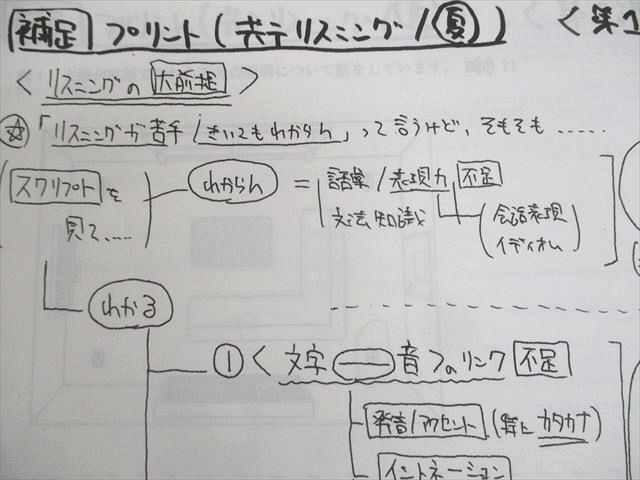 補足 プリント(共テリスニング/夏) <第1
<リスニングの大前提>
☆「リスニングが苦手/きいてもわからん」って言うけど、そもそも……
スクリプトを 見て、…… わからん = 語彙/表現力 不足
文法知識 (会話表現
イディオム)
わかる
① <文字 — 音 のリンク 不足
発音/アクセント (特にカタカナ)
イントネーション